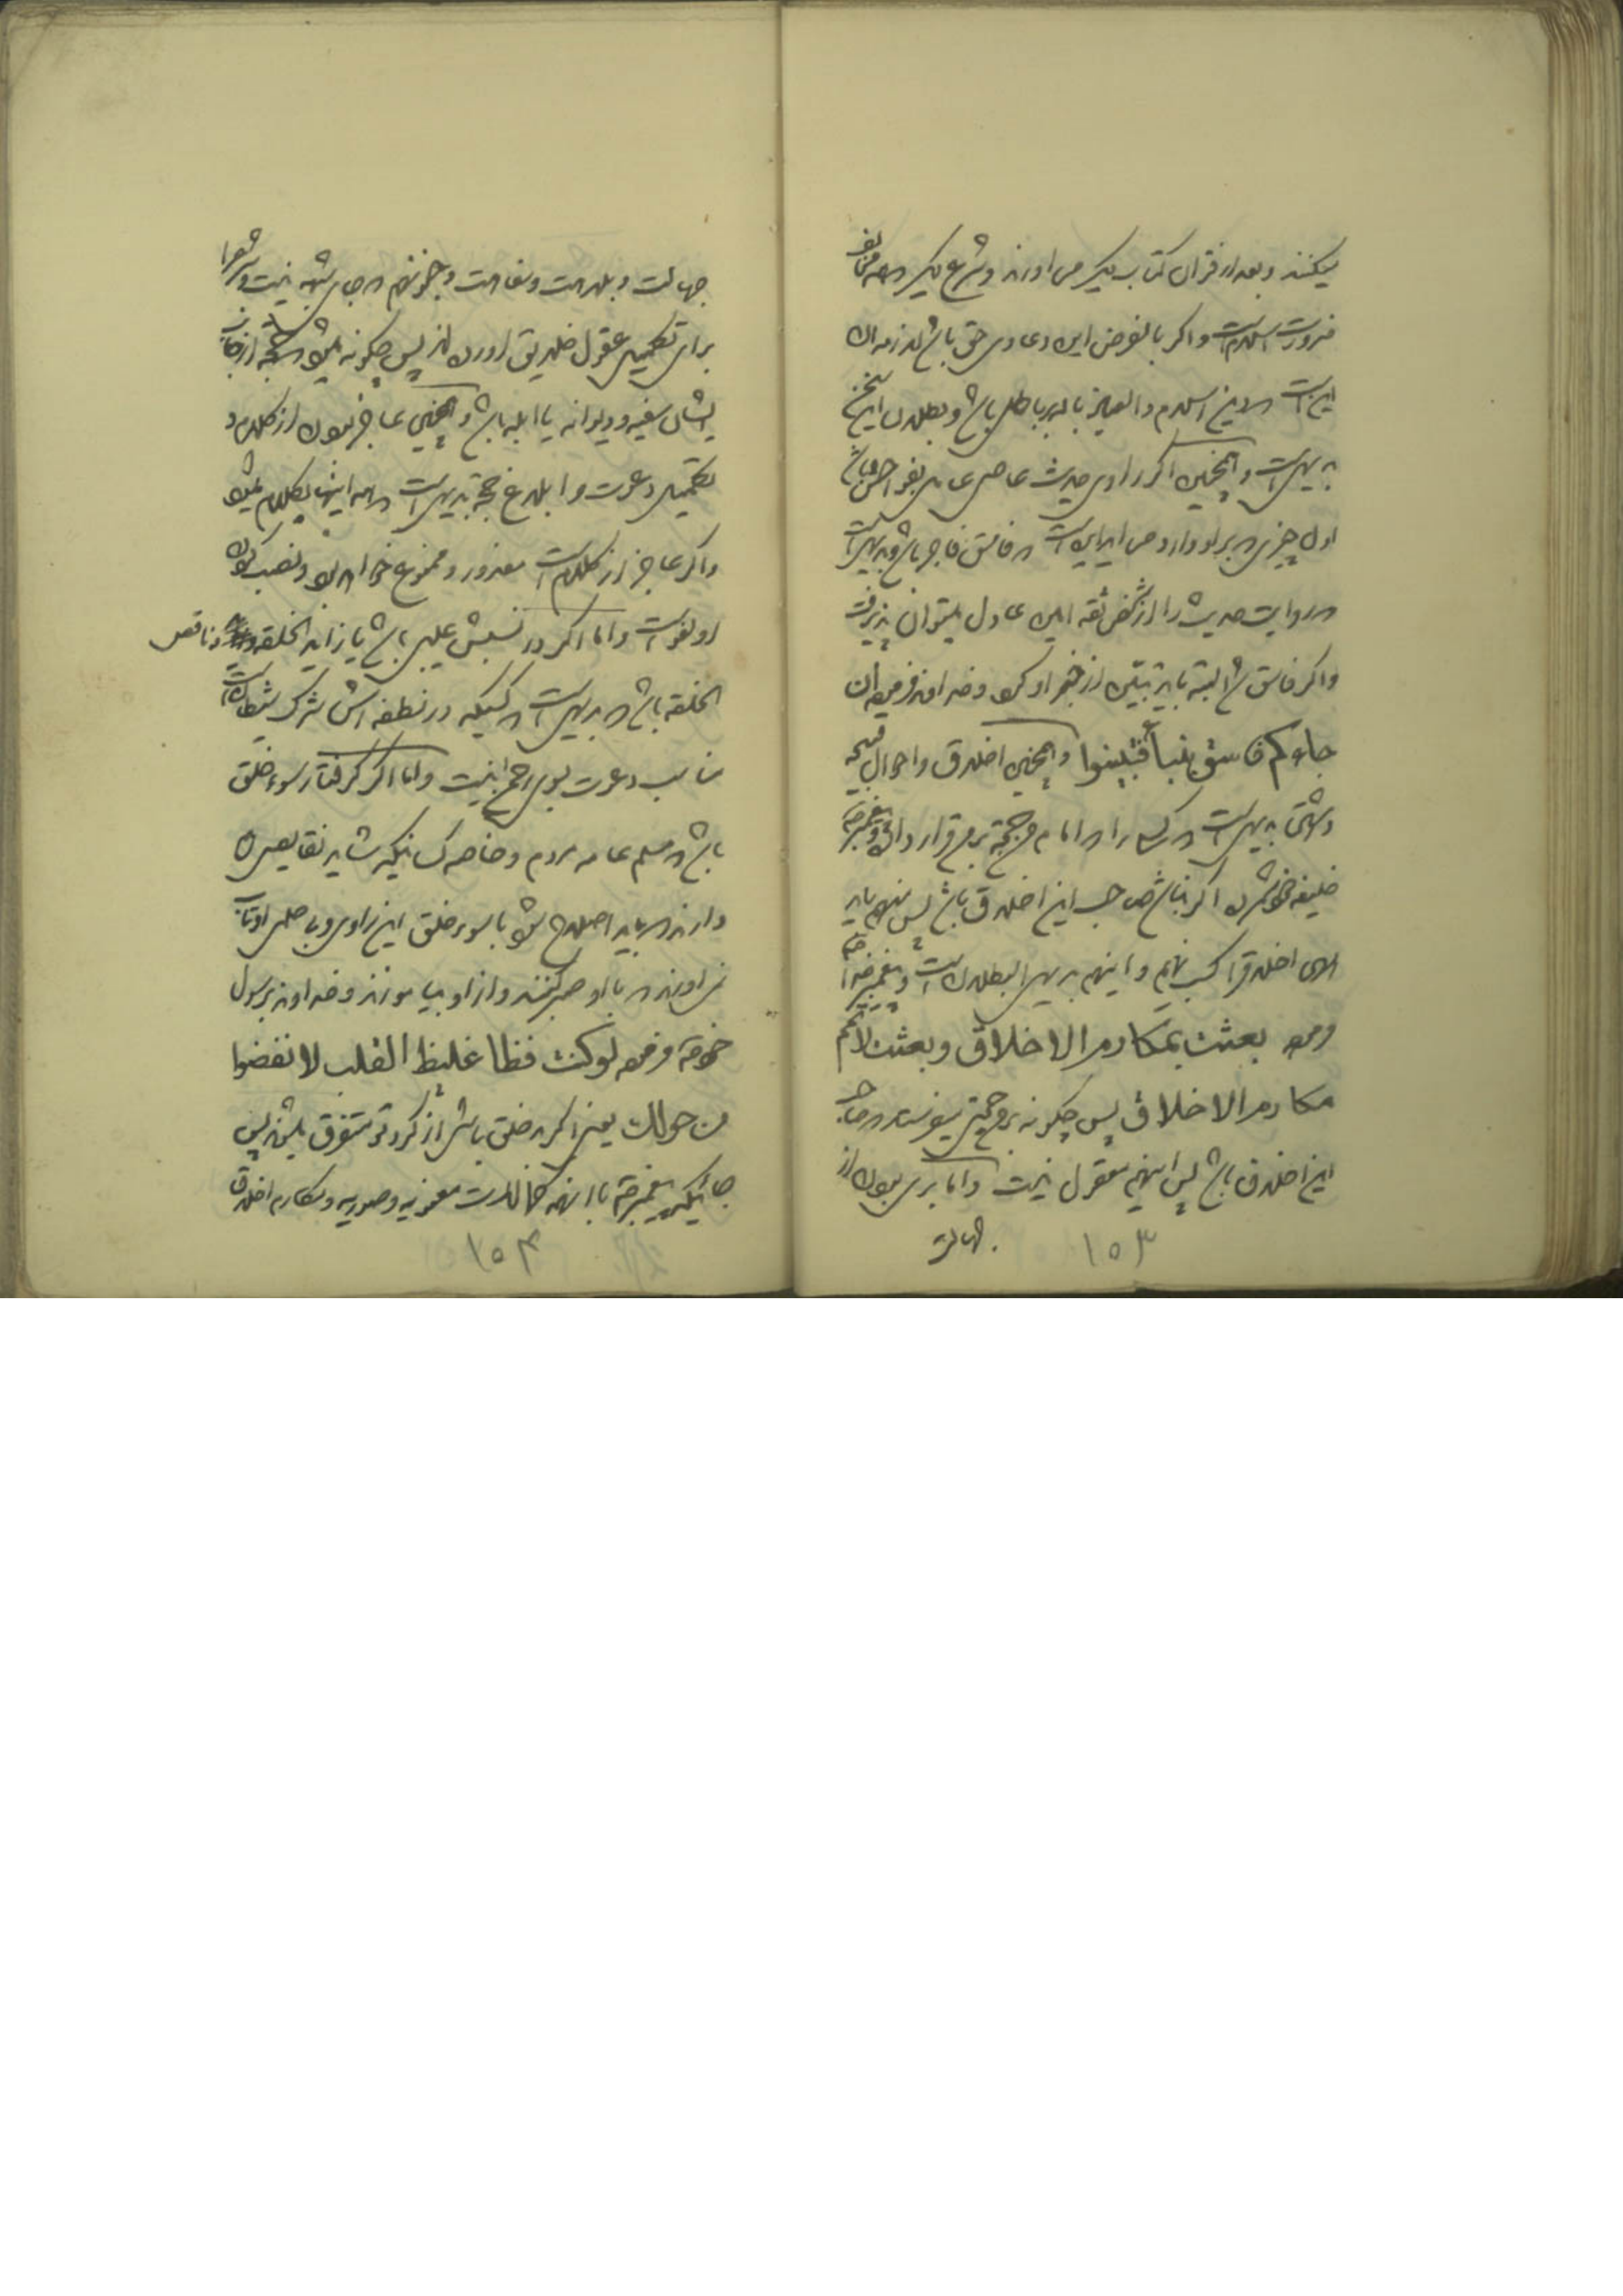 میکنند و بعد از قران کتاب دیگر می اورند و شرع دیگر که همه مخالف
ضرورت اسلام است و اگر بالفرض این دعاوی حق باشد لازمه ان
این است که دین اسلام والعیاذ بالله باطل باشد و بطلان این سخن
بدیهی است و همچنین اگر راوی حدیث عاصی
اول چیزی که بر او وارد می اید این است که فاسق فاجر باشد و بدیهی است
که روایت حدیث را از شخص ثقه امین عادل میتوان پذیرفت
و اگر فاسق شد البته باید تبین از خبر او کرد و خداوند فرموده ان
جاءکم فاسق بنبأ فتبینوا و همچنین اخلاق و احوال قبیحه
داشتن بدیهی است که کسی را که امام و حجة مردم قرار داده و پیغمبر
خلیفه خودش کرده اگر بنا شد صاحب این اخلاق باشد پس همه باید
اخلاق را کسب نمایم و اینهم بدیهی البطلان است و پیغمبر خدا
فرموده بعثت بمکارم الاخلاق و بعثت لاتمم
مکارم الاخلاق پس چگونه مروجی میفرستد که صاحب
این اخلاق باشد پس اینهم معقول نیست و اما بری بودن از
جهالت
۱۵۳
جهالت و بلاهت و سفاهت و جنونهم که جای شبهه نیست و شعرا
برای تکمیل عقول خلایق اورده اند پس چگونه میشود که حجة از جانب
ایشان سفیه و دیوانه یا ابله باشد و همچنین عاجز نبودن از کلام و
تکمیل دعوت و ابلاغ حجة بدیهی است که همه اینها بکلام میشود
و اگر عاجز از کلام است معذور و ممنوع خواهد بود و نصب کردن
او لغو است و اما اگر در نسبش عیبی باشد یا زاید الخلقه و ناقص
الخلقه باشد که بدیهی است که کسیکه در نطفه اش شرک شیطان است
مناسب دعوت بسوی رحمن نیست و اما اگر گرفتار سوء خلق
باشد که مسلم عامه مردم و خاصه کسانیکه شاید نقایصی
دارند که باید اصلاح شود با سوء خلق این راوی و بد خلقی او تاب
نمی اورند که با او صبر کنند و از او بیاموزند و خداوند برسول
خود ص فرموده لو کنت فظا غلیظ القلب لانفضوا
من حولک یعنی اگر بد خلق باشی از گرد تو متفرق میشوند پس
جائیکه پیغمبر ص با انهمه کمالات معنویه و صوریه و مکارم اخلاق
۱۵۴